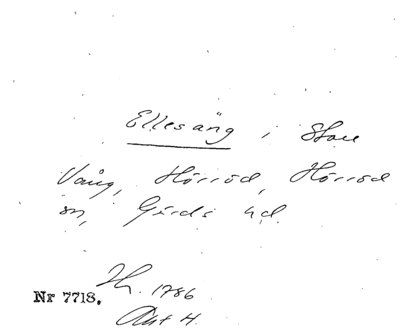 Ellesäng i Stora
Vång, Hörröd, Hörröd
sn, Gärds hd.
Nr 7718.
1786
Akt H.